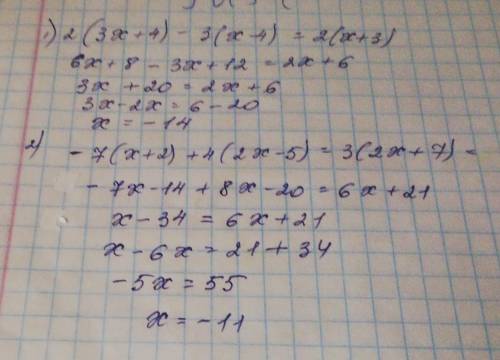 1) 2(3x+4) - 3(x-4) = 2(x+3)
6x+8 - 3x+12 = 2x+6
3x + 20 = 2x+6
3x-2x = 6-20
x = -14
2) -7(x+2) + 4(2x-5) = 3(2x+7) -
-7x-14 + 8x-20 = 6x+21
x-34 = 6x+21
x-6x = 21+34
-5x = 55
x = -11